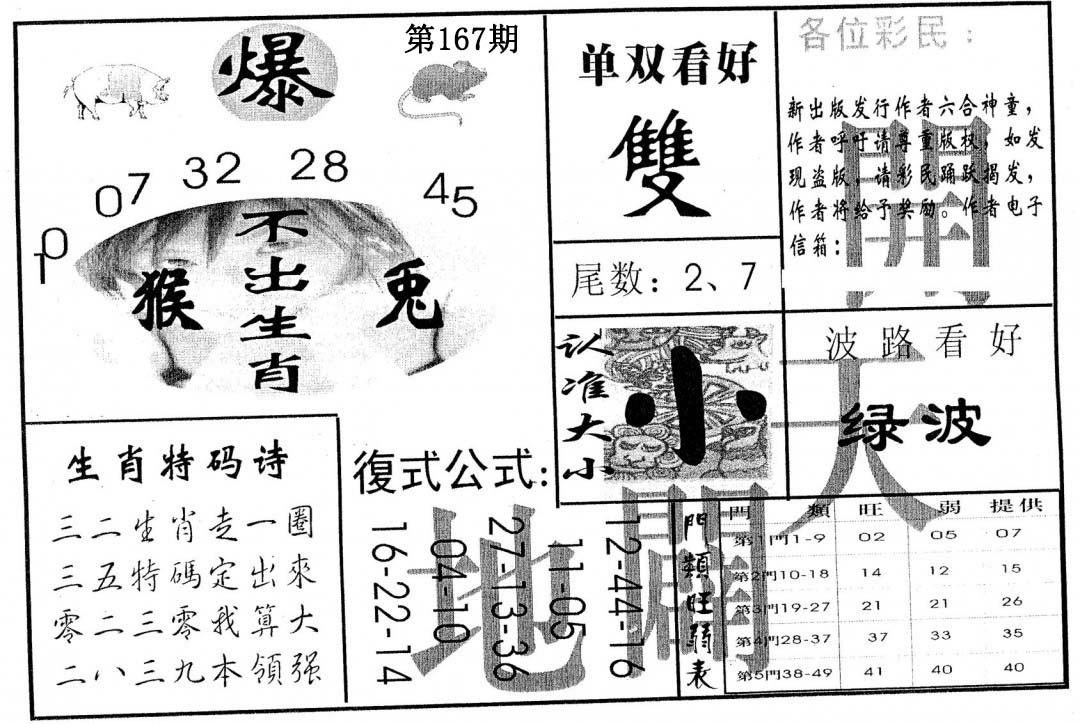 第167期
爆
10 07 32 28 45
不出生肖
猴
兔
单双看好
雙
尾数：2、7
认准大小
小
各位彩民：
新出版发行作者六合神童，
作者呼吁请尊重版权，如发
现盗版，请彩民踊跃揭发，
作者将给予奖励。作者电子
信箱：
波路看好
绿波
天
地
開
開
生肖特码诗
三二生肖走一圈
三五特碼定出來
零二三零我算大
二八三九本領强
復式公式：
16-22-14
04-10
27-13-36
11-05
12-44-16
門類旺弱表
門類 旺 弱 提供
第1門1-9 02 05 07
第2門10-18 14 12 15
第3門19-27 21 21 26
第4門28-37 37 33 35
第5門38-49 41 40 40